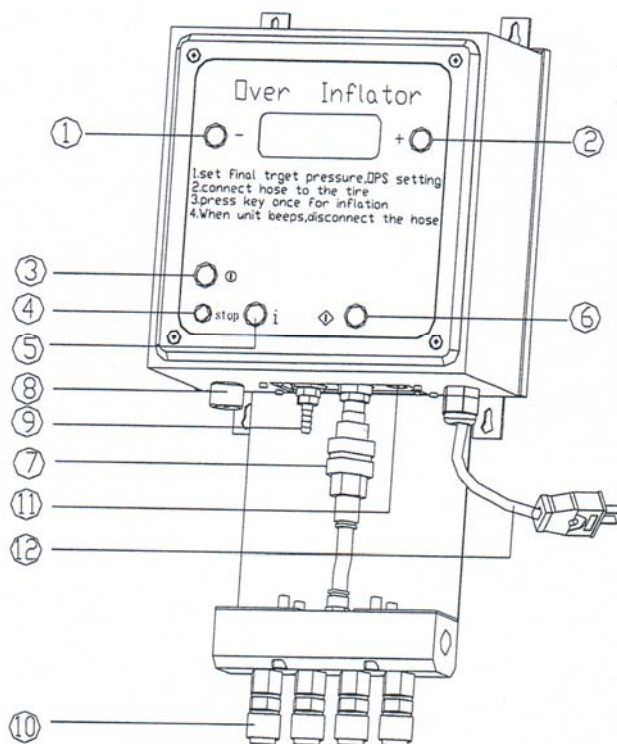 Over Inflator
① - + ②
1.set final trget pressure,OPS setting
2.connect hose to the tire
3.press key once for inflation
4.When unit beeps,disconnect the hose
③
④ stop i ⑥
⑤
⑧
⑨
⑦
⑪
⑫
⑩